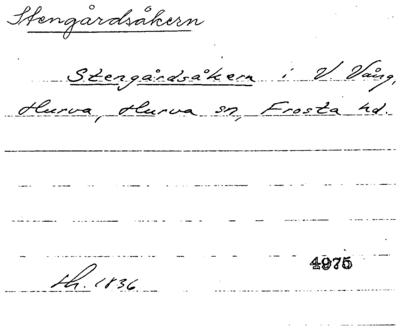 Stengårdsåkern
Stengårdsåkern i V Vång,
Hurva, Hurva sn, Frosta hd.
4975
sh. 1836